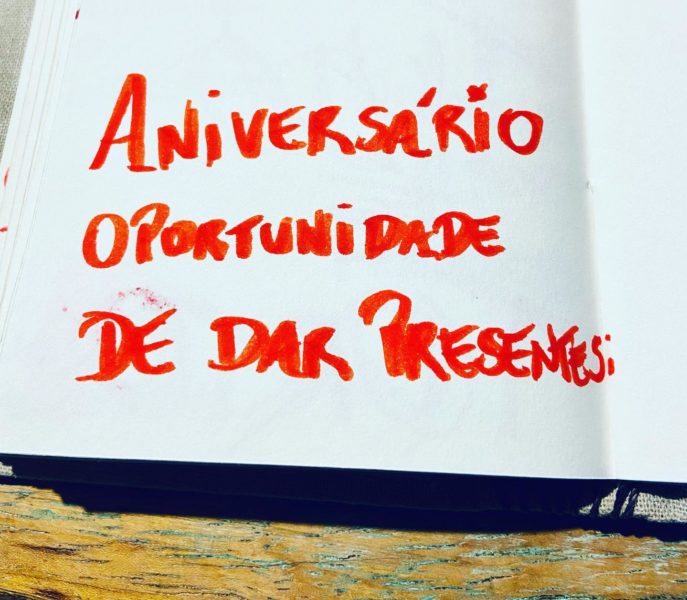 ANiVERSÁRiO
OPORTUNiDADE
DE DAR PRESENTES: